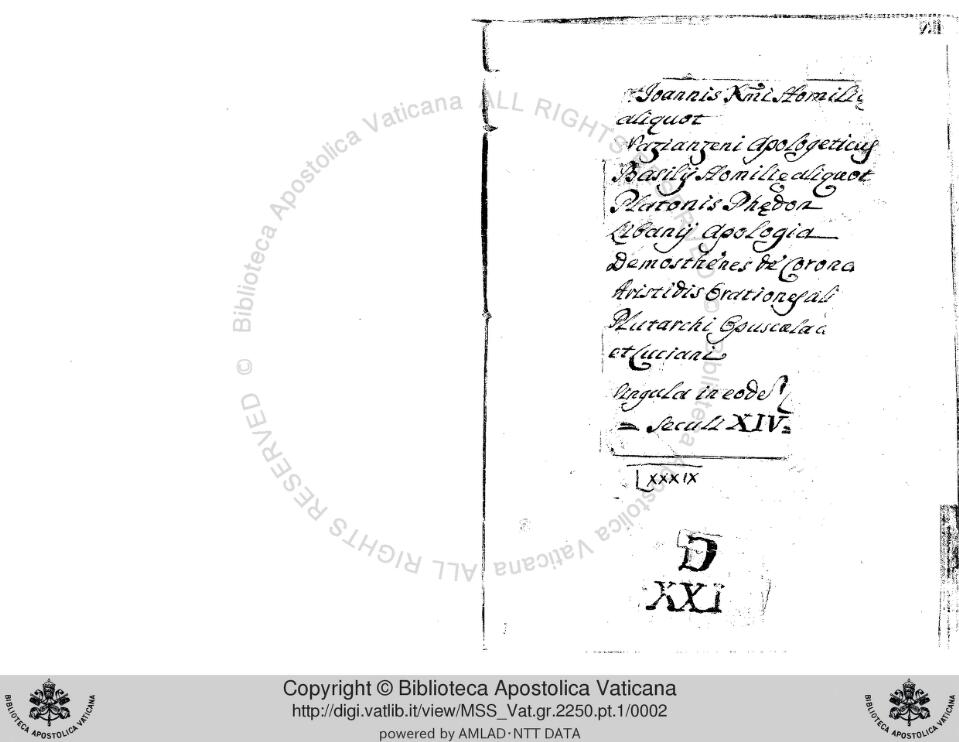 Joannis Xmi Homilię
aliquot
Nazianzeni Apologeticus
Basilij Homilię aliquot
Platonis Phędon
Libanij Apologia
Demosthenes de Corona
Aristidis Orationes ali
Plutarchi Opuscula
et Luciani
singula in eode
= Seculi XIV =
LXXXIX
D
XXI
Biblioteca Apostolica Vaticana ALL RIGHTS RESERVED © Biblioteca Apostolica Vaticana ALL RIGHTS RESERVED ©
Copyright © Biblioteca Apostolica Vaticana
http://digi.vatlib.it/view/MSS_Vat.gr.2250.pt.1/0002
powered by AMLAD·NTT DATA
BIBLIOTECA APOSTOLICA VATICANA
BIBLIOTECA APOSTOLICA VATICANA